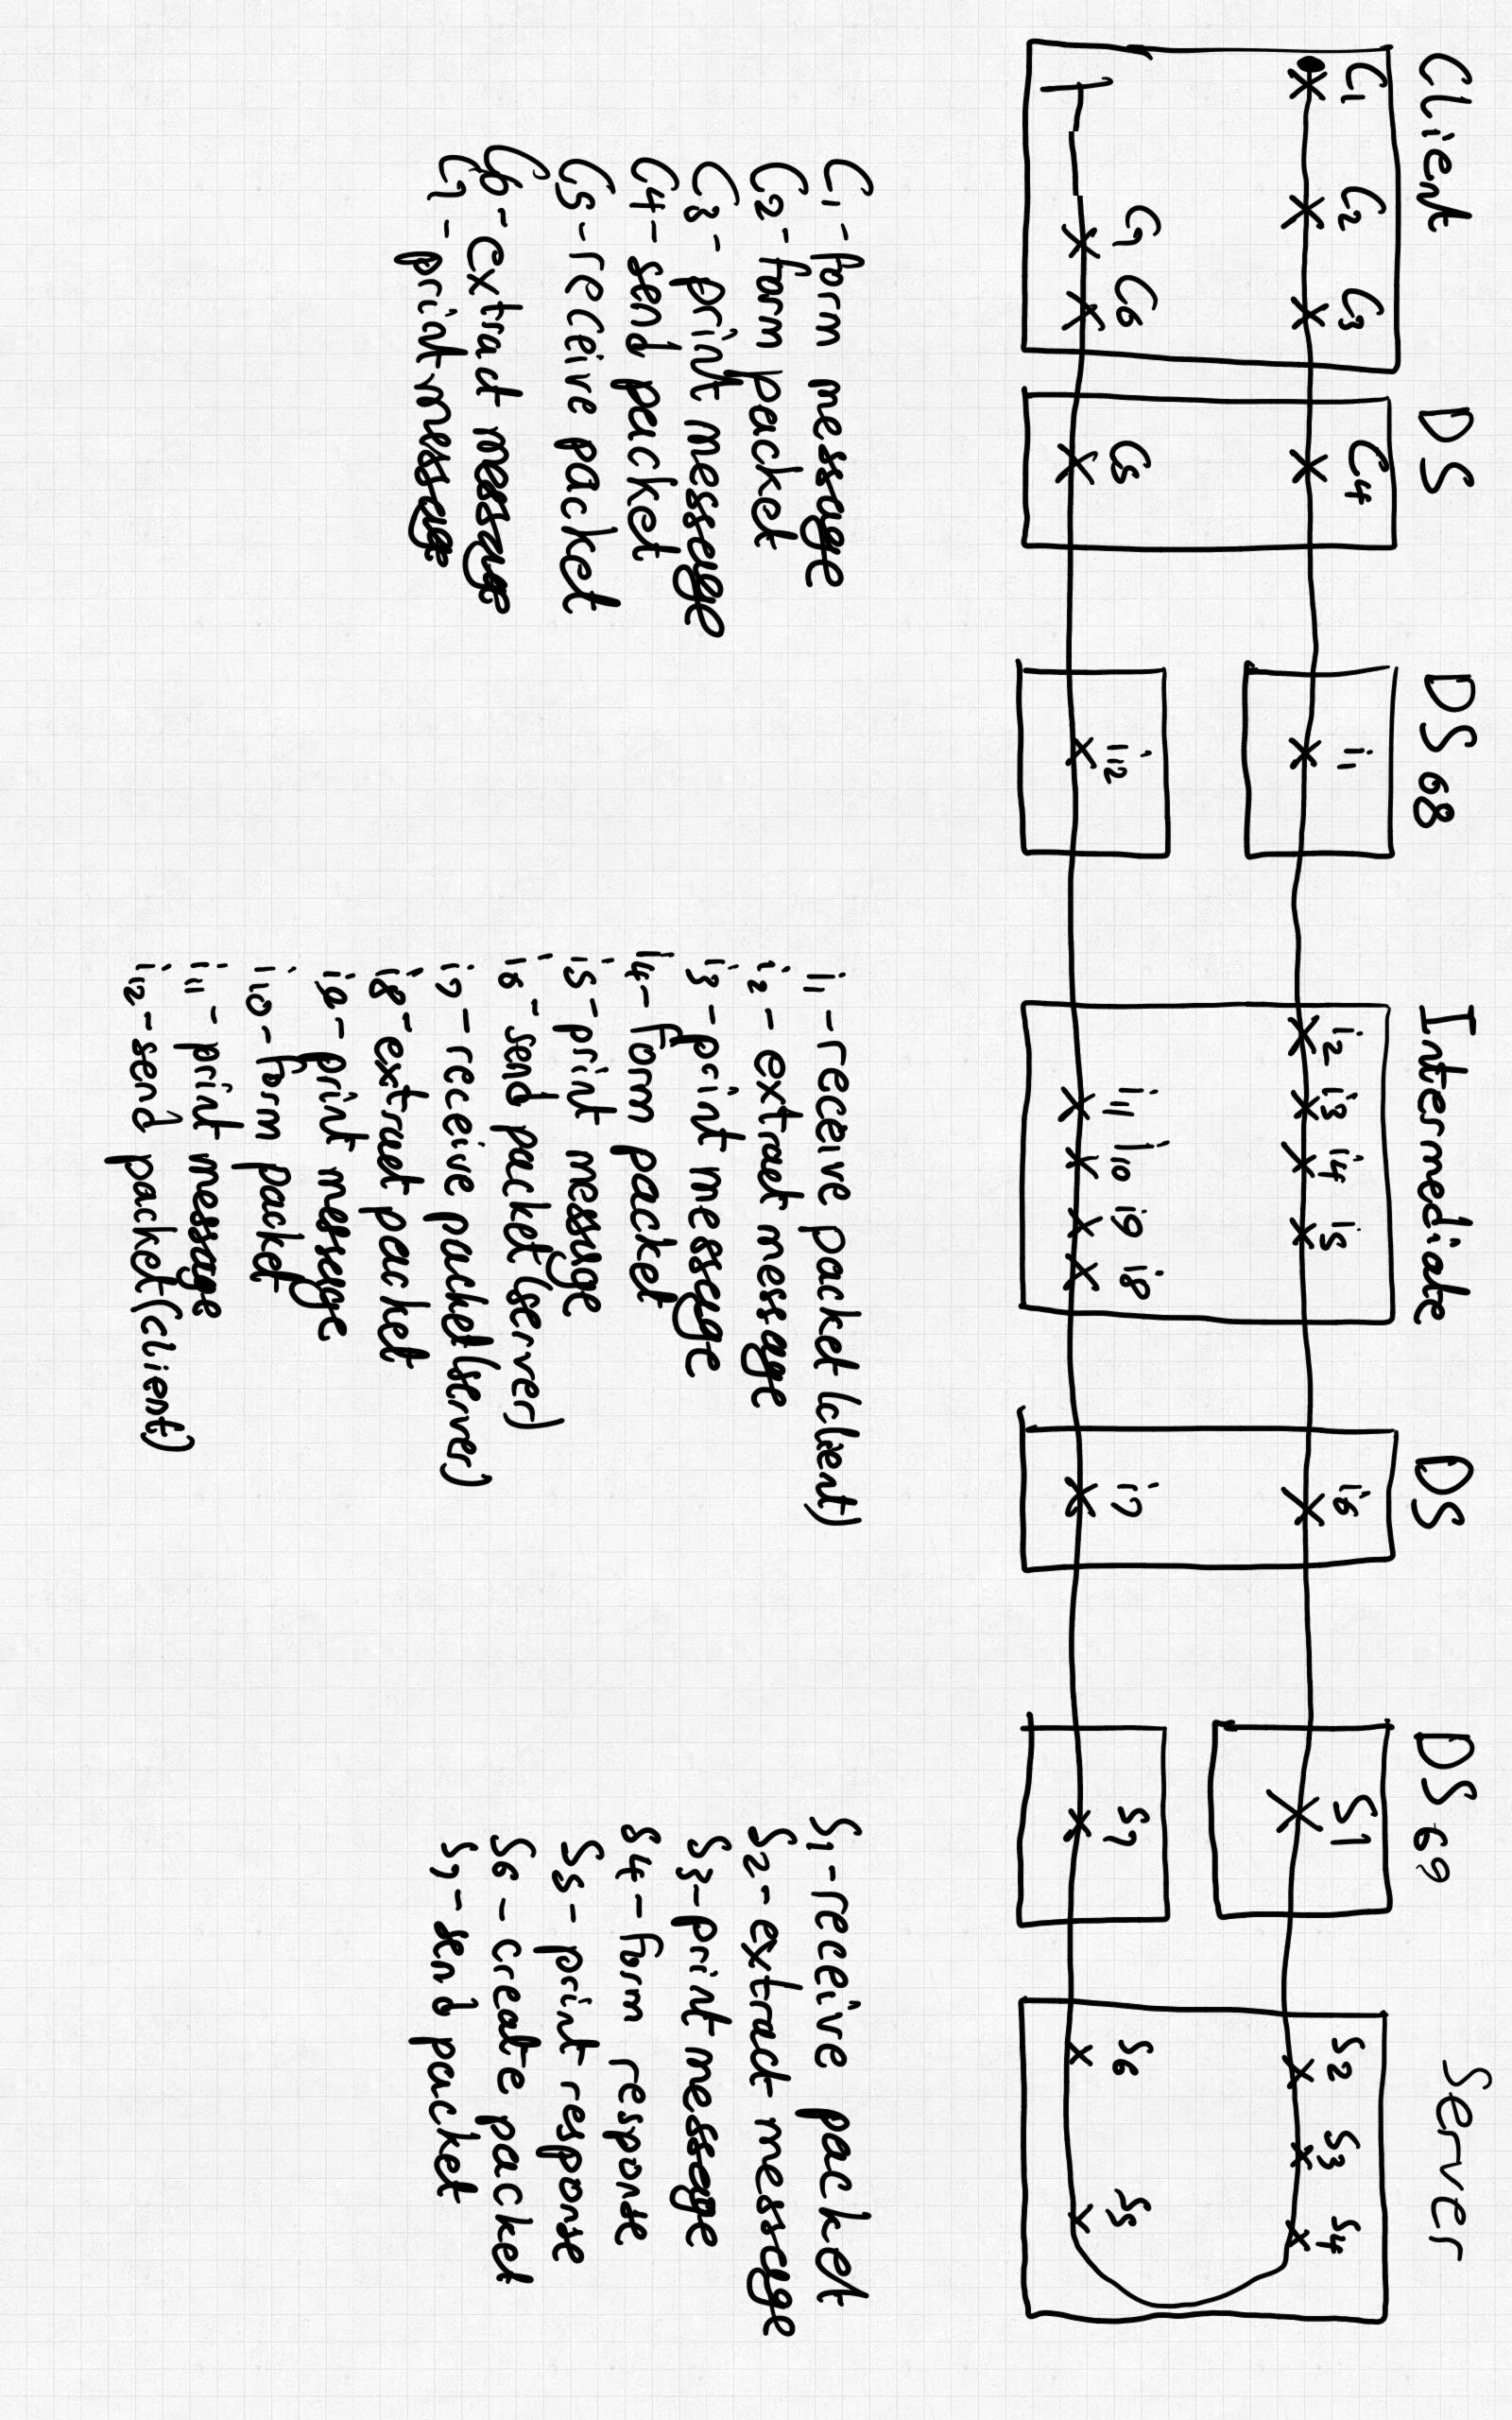 Client DS DS 68 Intermediate DS DS 69 Server
C1 C2 C3 C4 i1 i2 i3 i4 i5 i6 S1 S2 S3 S4
C7 C6 C5 i12 i11 i10 i9 i8 i7 S7 S6 S5
C1-form message
C2-form packet
C3-print message
C4-send packet
C5-receive packet
C6-extract message
C7-print message
i1-receive packet(client)
i2-extract message
i3-print message
i4-form packet
i5-print message
i6-send packet(server)
i7-receive packet(server)
i8-extract packet
i9-print message
i10-form packet
i11-print message
i12-send packet(client)
S1-receive packet
S2-extract message
S3-print message
S4-form response
S5-print response
S6-create packet
S7-send packet